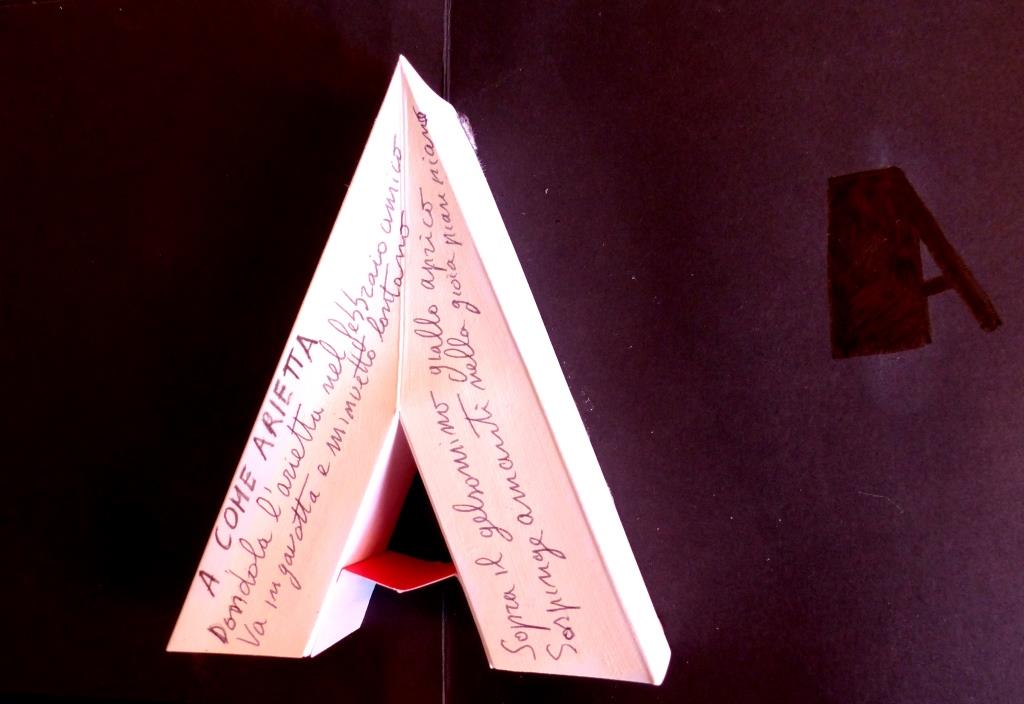 A COME ARIETTA
Dondola l'arietta nel lezzaio amico
Va in gavotta e minuetto lontano
Sopra il gelsomino giallo aprico
Sospinge amanti nella gioia piano piano
A